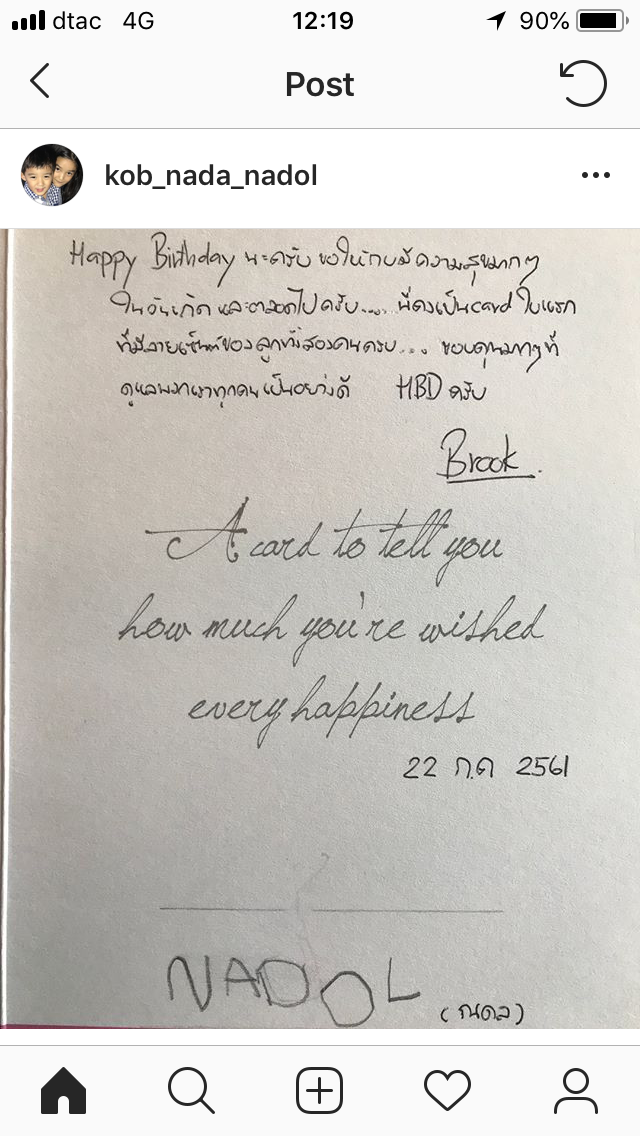 dtac 4G 12:19 90%
Post
kob_nada_nadol
Happy Birthday นะครับ ขอให้กบมีความสุขมากๆ
ในวันเกิด และตลอดไปครับ.... นี่คงเป็นcard ใบแรก
ที่มีลายเซ็นต์ของลูกทั้งสองคนครับ.... ขอบคุณมากๆที่
ดูแลพวกเราทุกคนเป็นอย่างดี HBD ครับ
Brook.
A card to tell you
how much you're wished
every happiness
22 ก.ค 2561
NADOL
(ณดล)